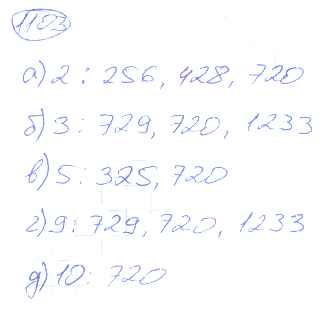 1103
а) 2 : 256, 428, 720
б) 3 : 729, 720, 1233
в) 5 : 325, 720
г) 9 : 729, 720, 1233
д) 10 : 720